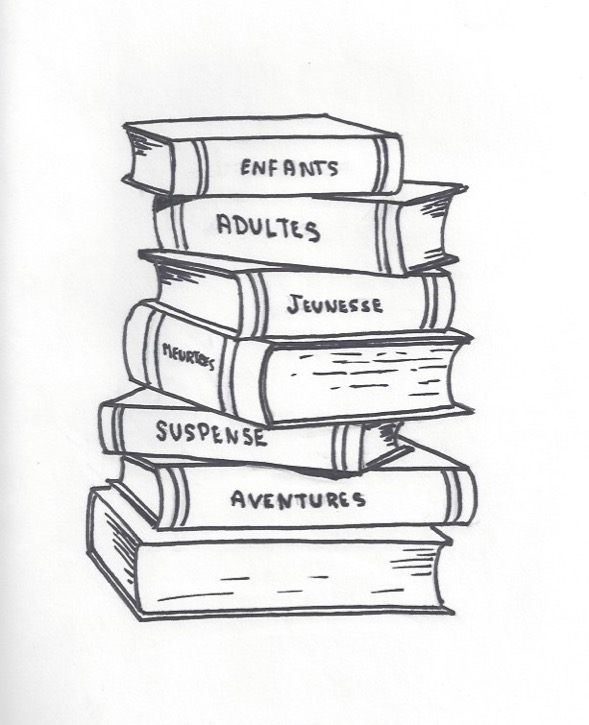 ENFANTS
ADULTES
JEUNESSE
MEURTRES
SUSPENSE
AVENTURES